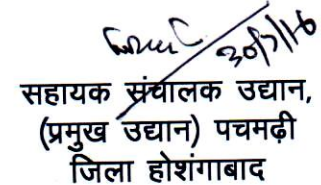 30/7/16
सहायक संचालक उद्यान,
(प्रमुख उद्यान) पचमढ़ी
जिला होशंगाबाद